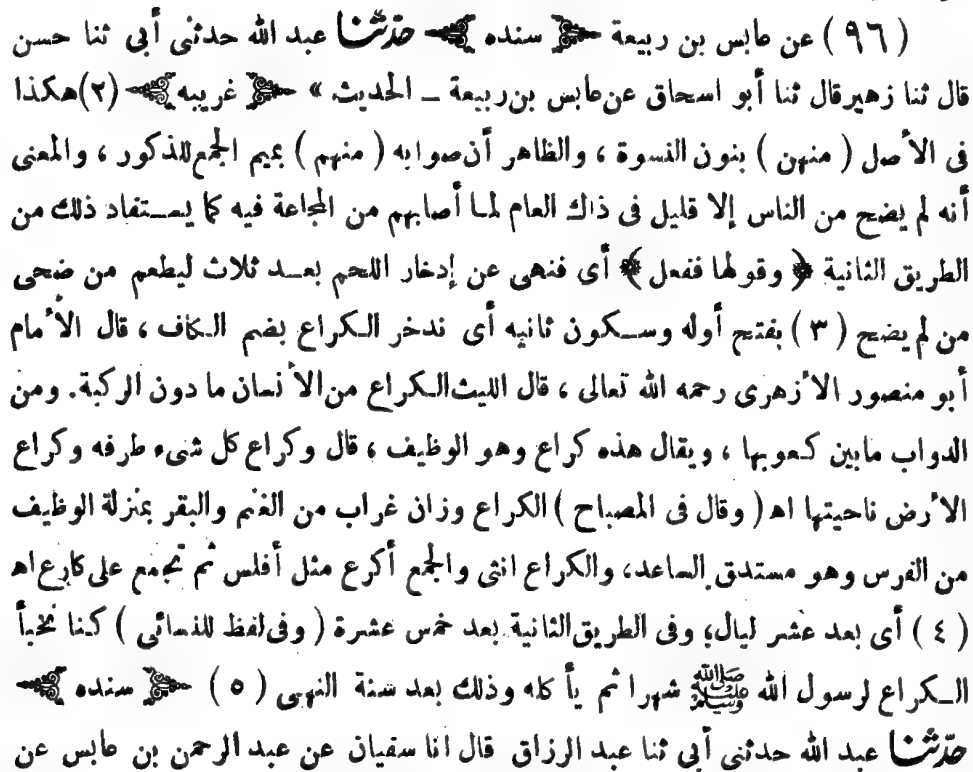 (٩٦) عن عابس بن ربيعة ﴿ سنده ﴾ حدّثنا عبد الله حدثنى أبى ثنا حسن
قال ثنا زهير قال ثنا أبو اسحاق عن عابس بن ربيعة ــ الحديث » ﴿ غريبه ﴾ (٢) هكذا
فى الأصل ( منهن ) بنون النسوة ، والظاهر أن صوابه ( منهم ) بميم الجمع للذكور ، والمعنى
أنه لم يضح من الناس إلا قليل فى ذاك العام لما أصابهم من المجاعة فيه كما يستفاد ذلك من
الطريق الثانية ﴿ وقولها ففعل ﴾ أى فنهى عن إدخار اللحم بعد ثلاث ليطعم من ضحى
من لم يضح (٣) بفتح أوله وسكون ثانيه أى ندخر الكراع بضم الكاف ، قال الأمام
أبو منصور الأزهرى رحمه الله تعالى ، قال الليث الكراع من الأنسان ما دون الركبة. ومن
الدواب مابين كعوبها ، ويقال هذه كراع وهو الوظيف ، قال وكراع كل شىء طرفه وكراع
الأرض ناحيتها اهـ ( وقال فى المصباح ) الكراع وزان غراب من الغنم والبقر بمنزلة الوظيف
من الفرس وهو مستدق الساعد، والكراع انثى والجمع أكرع مثل أفلس ثم تجمع على كارع اهـ
(٤) أى بعد عشر ليال، وفى الطريق الثانية بعد خمس عشرة ( وفى لفظ للنسائى ) كنا نخبأ
الكراع لرسول الله ﷺ شهرا ثم يأكله وذلك بعد سنة النهى (٥) ﴿ سنده ﴾
حدّثنا عبد الله حدثنى أبى ثنا عبد الرزاق قال انا سفيان عن عبد الرحمن بن عابس عن